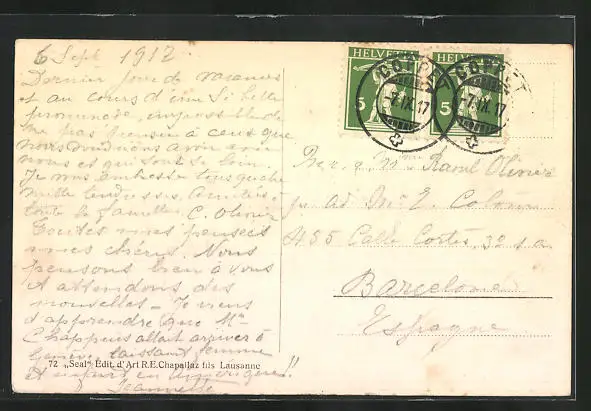 6 Sept 1917
Dernier jour de vacances
et au cours d'une si belle
promenade, impossible de
ne pas penser à ceux que
nous voudrions avoir avec
nous et qui sont si loin.
Je vous embrasse tous avec
mille tendresses. Amitiés à
toute la famille. C. Olivier
Toutes mes pensées
mes chéris. Nous
pensons bien à vous
et attendons des
nouvelles - Je viens
d'apprendre que Mr
Chappuis allait arriver à
Genève laissant femme
et enfant en Amérique!!
Jeannette
72 „Seal“ Edit. d'Art R. E. Chapallaz fils Lausanne
HELVETIA
5
HELVETIA
5
COPPET
7.IX.17
COPPET
7.IX.17
Raoul Olivier
E. Colom
455 Calle Cortes, 3º 1a
Barcelone
Espagne